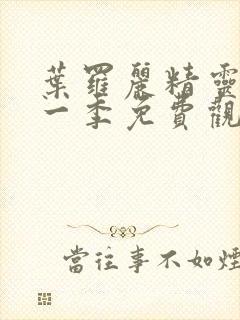 葉羅麗精靈
一季免費觀
當往事不如煙